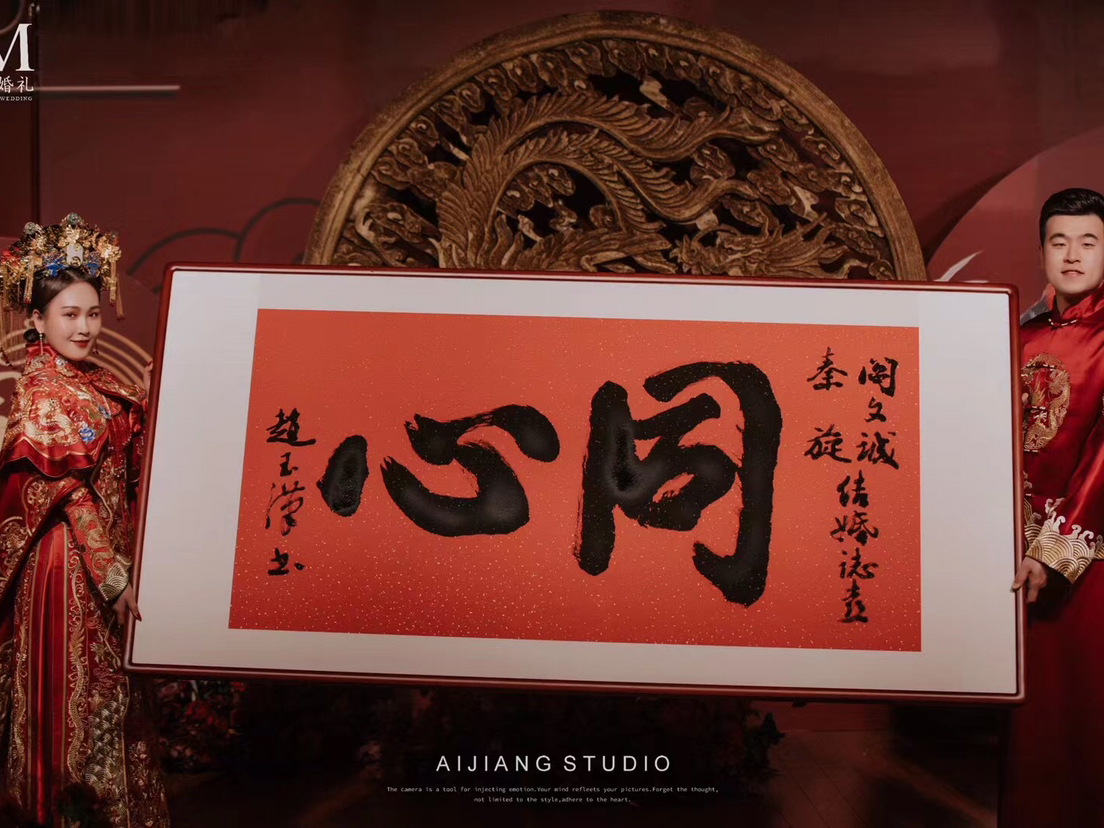 M
婚礼
WEDDING
阎文诚
秦旋
结婚誌喜
同心
趙玉漢书
AIJIANG STUDIO
The camera is a tool for injecting emotion.Your mind reflects your pictures.Forget the thought,
not limited to the style,adhere to the heart.